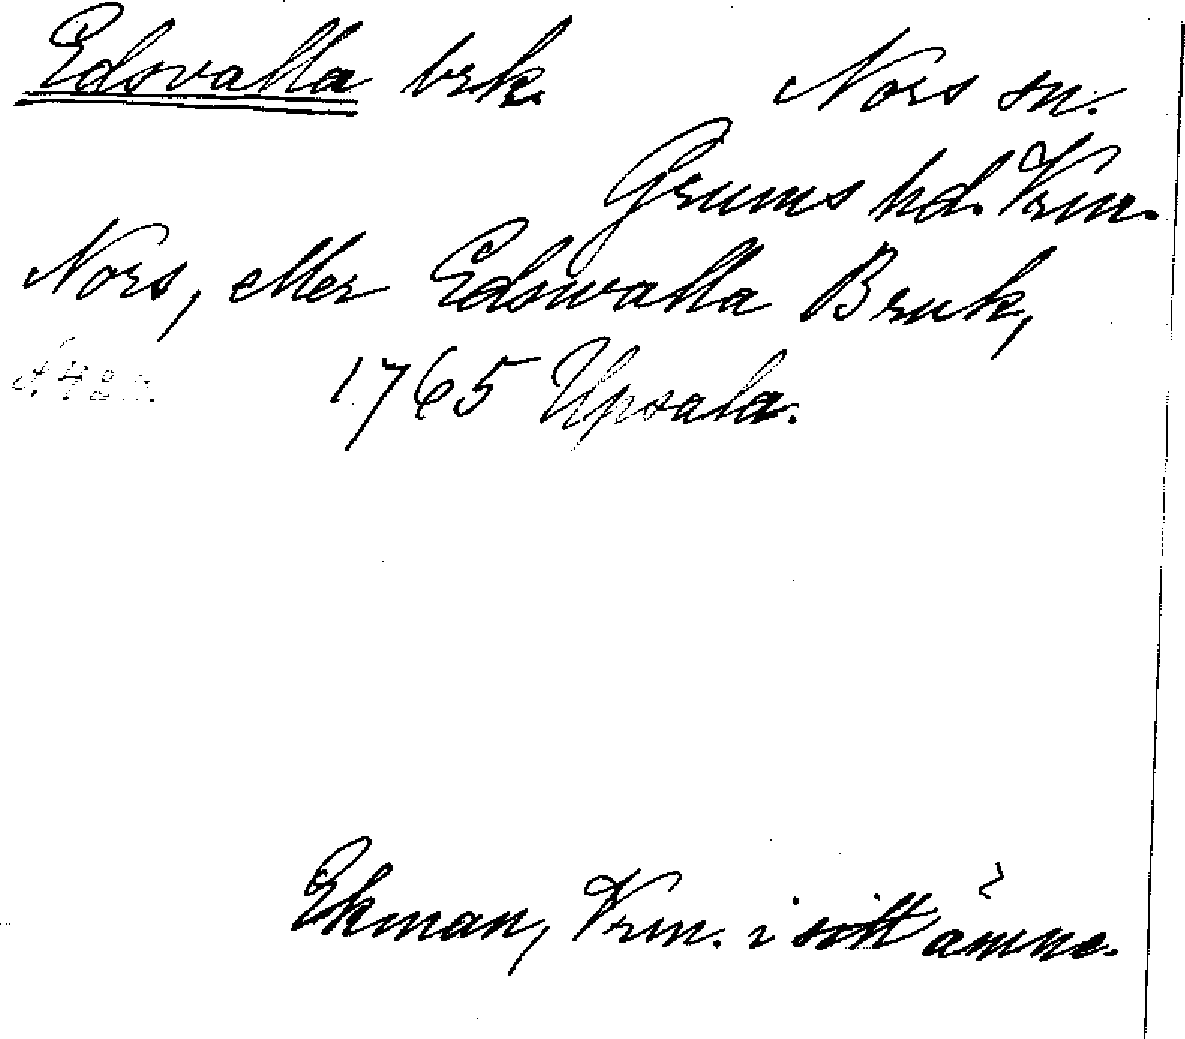 Edsvalla brk. Nors sn.
Grums hd. Vrm.
Nors, eller Edswalla Bruk,
1765 Upsala.
Ekman, Vrm. i sitt ämne.